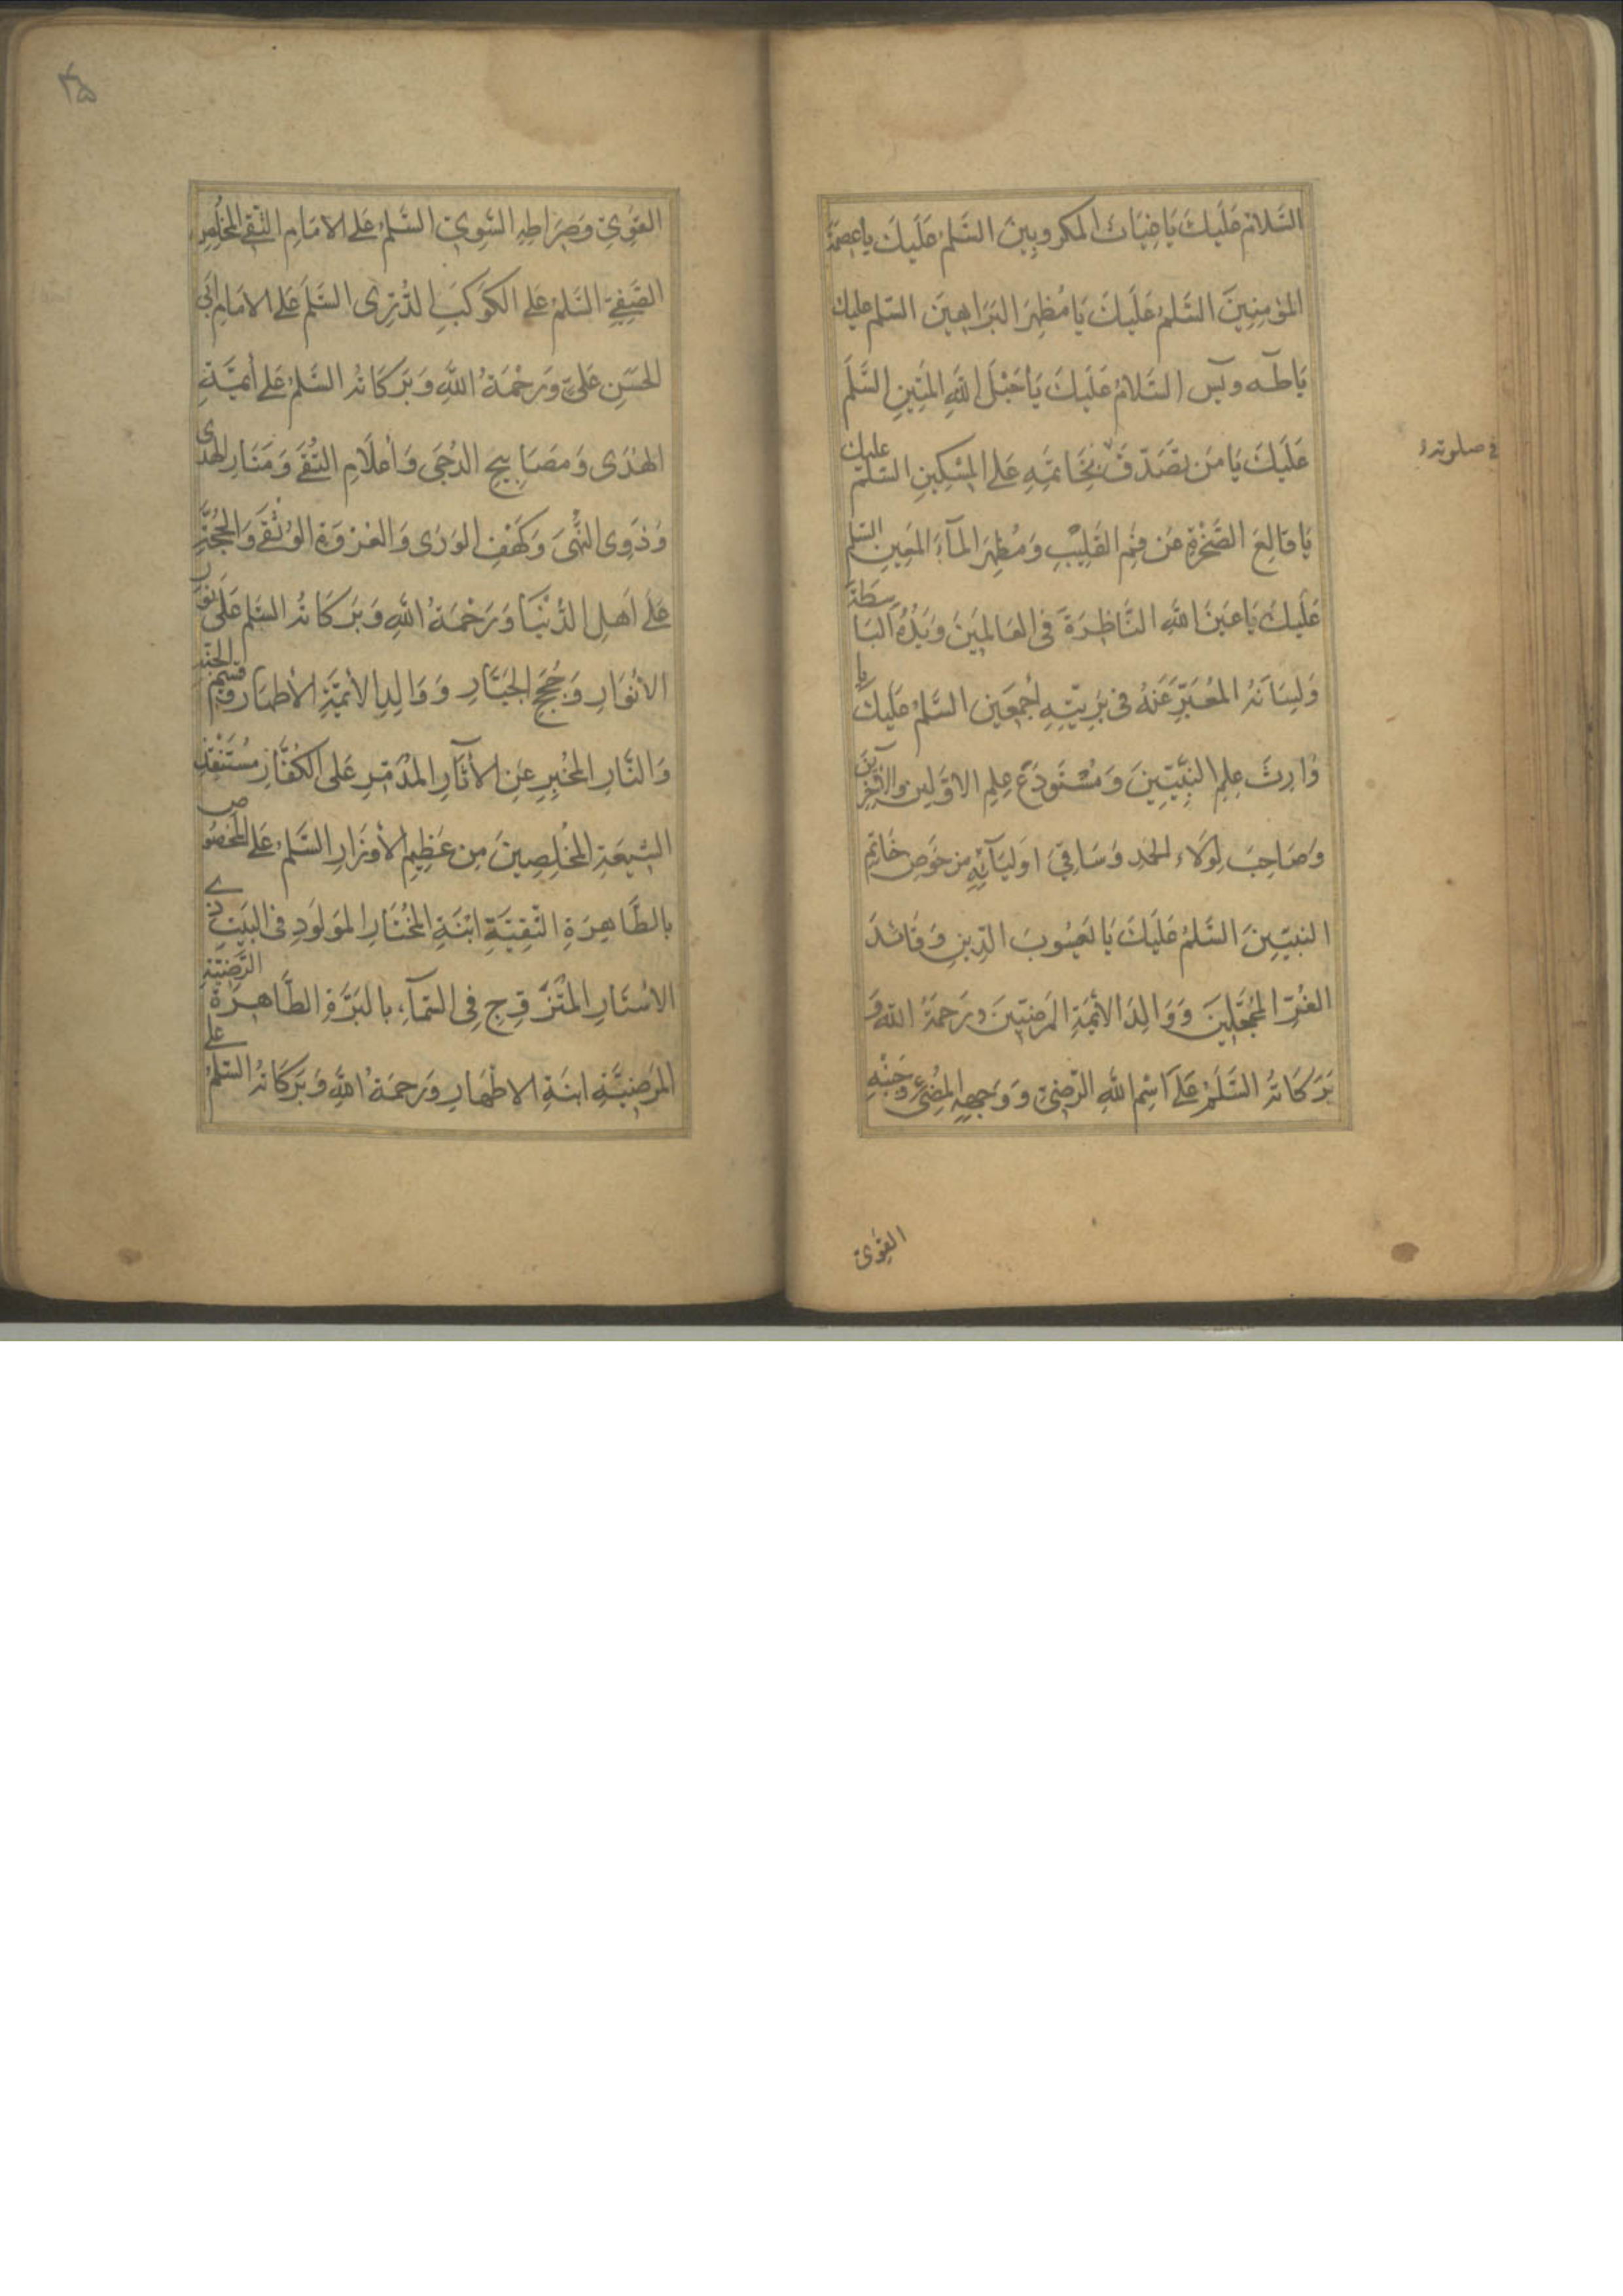 السَّلَامُ عَلَيْكَ يَا غِيَاثَ المَكرُوبِينَ السَّلمُ عَلَيكَ يا عِصمَةَ
المُؤمِنِينَ السَّلمُ عَلَيكَ يَا مُظهِرَ البَرَاهِينَ السّلم عليك
يَا طٓه ويٓس السَّلامُ عَلَيكَ يَا حَبْلَ اللَّهِ المَتِينِ السَّلَم
عَلَيكَ يَا مَن تصَدَّقَ بِخَاتَمِهِ عَلى المِسكِينِ السَّلم عليك
في صلوته
يَا قَالِعَ الصَّخْرَةِ عَن فَمِ القَلِيْبِ وَمُظهِرَ المآءَ المَعِينِ السّلم
عَلَيكَ يَا عَينَ اللَّهِ النَّاظِرَةَ فى العَالَمِينَ وَيَدُهُ البَاسِطَةَ
وَلِسَانَهُ المُعَبِّرَ عَنهُ فى بَرِيَّتِهِ أجمَعِين السَّلمُ عَليكَ يا
وَارِثَ عِلمِ النَبِيِّينَ وَمُسْتَودَعَ عِلمِ الاوَّلِين والآخِرِينَ
وَصَاحِبَ لِوَلاءِ الحَمدِ وَسَاقِىَ اوَليَآئِهِ مِن حَوضِ خَاتِمِ
النبيّينَ السَّلمُ عَلَيكَ يَا يَعسُوبَ الدِّينِ وَقَائدَ
الغُرِّ المُحَجَّلِينَ وَوَالِدَ الأئِمَّةِ المَرضِيّينَ وَرَحمَةُ اللَّهِ وَ
بَرَكَاتُهُ السَّلَمُ عَلَى اسْمِ اللَّهِ الرَّضِىِّ وَوَجهِهِ المُضِىءِ وَجَنْبِهِ
القَوِىِّ
٣٥
القَوِىِّ وَصِرَاطِهِ السَّوِىِّ السَّلمُ عَلى الامَامِ التَّقِى المُخلِصِ
الصَّفِىِّ السَّلمُ عَلى الكَوكَبِ الدُّرِّى السَّلَم عَلى الامَامِ أبى
الحَسَنِ عَلىٍّ وَرَحْمَةُ اللَّهِ وَبَرَكَاتُهُ السَّلمُ عَلى أئِمَّةِ
الهُدَى وَمَصَابِيحِ الدُجَى وَأعلَامِ التُّقَى وَمَنَارِ الهُدى
وَذَوِى النُّهَىَ وَكَهفِ الوَرَى وَالعُروَةِ الوُثْقَى وَالحُجَّةِ
عَلَى أهلِ الدُّنْيَا وَرَحْمَةُ اللَّهِ وَبَرَكَاتُهُ السَّلم عَلَى نور
الأنْوَارِ وَحُجَجِ الجَبَّارِ وَوَالِدِ الأئِمَّةِ الأطهَارِ وقَسِيم الجَنَّةِ
وَالنَّارِ المُخبِرِ عَنِ الأثَآرِ المُدَمِّرِ عَلى الكُفَّارِ مُستَنقِذِ
الشِيعَةِ المُخْلِصِينَ مِن عَظِيمِ الأوزَارِ السَّلمُ عَلى المَخصُوصِ
بالطَّاهِرَةِ التَّقِيَّةِ ابْنَةِ المُخْتَارِ المَولَودِ فى البَيتِ ذى
الاسْتَارِ المُتَزَوِّجِ فِى السَّمَآءِ، بالبَرَّةِ الطَّاهِرَةِ الرَّضِيَّةِ
المَرضِيَّةِ ابنَةِ الاطهَارِ وَرَحمَةُ اللَّهِ وَبَرَكَاتُهُ السّلمُ عَلى